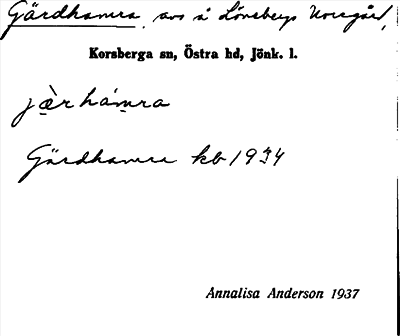 Gärdhamra, avs å Lövsbergs Norrgård,
Korsberga sn, Östra hd, Jönk. l.
jæ̀rhám̥ra
Gärdhamra kb 1934
Annalisa Anderson 1937